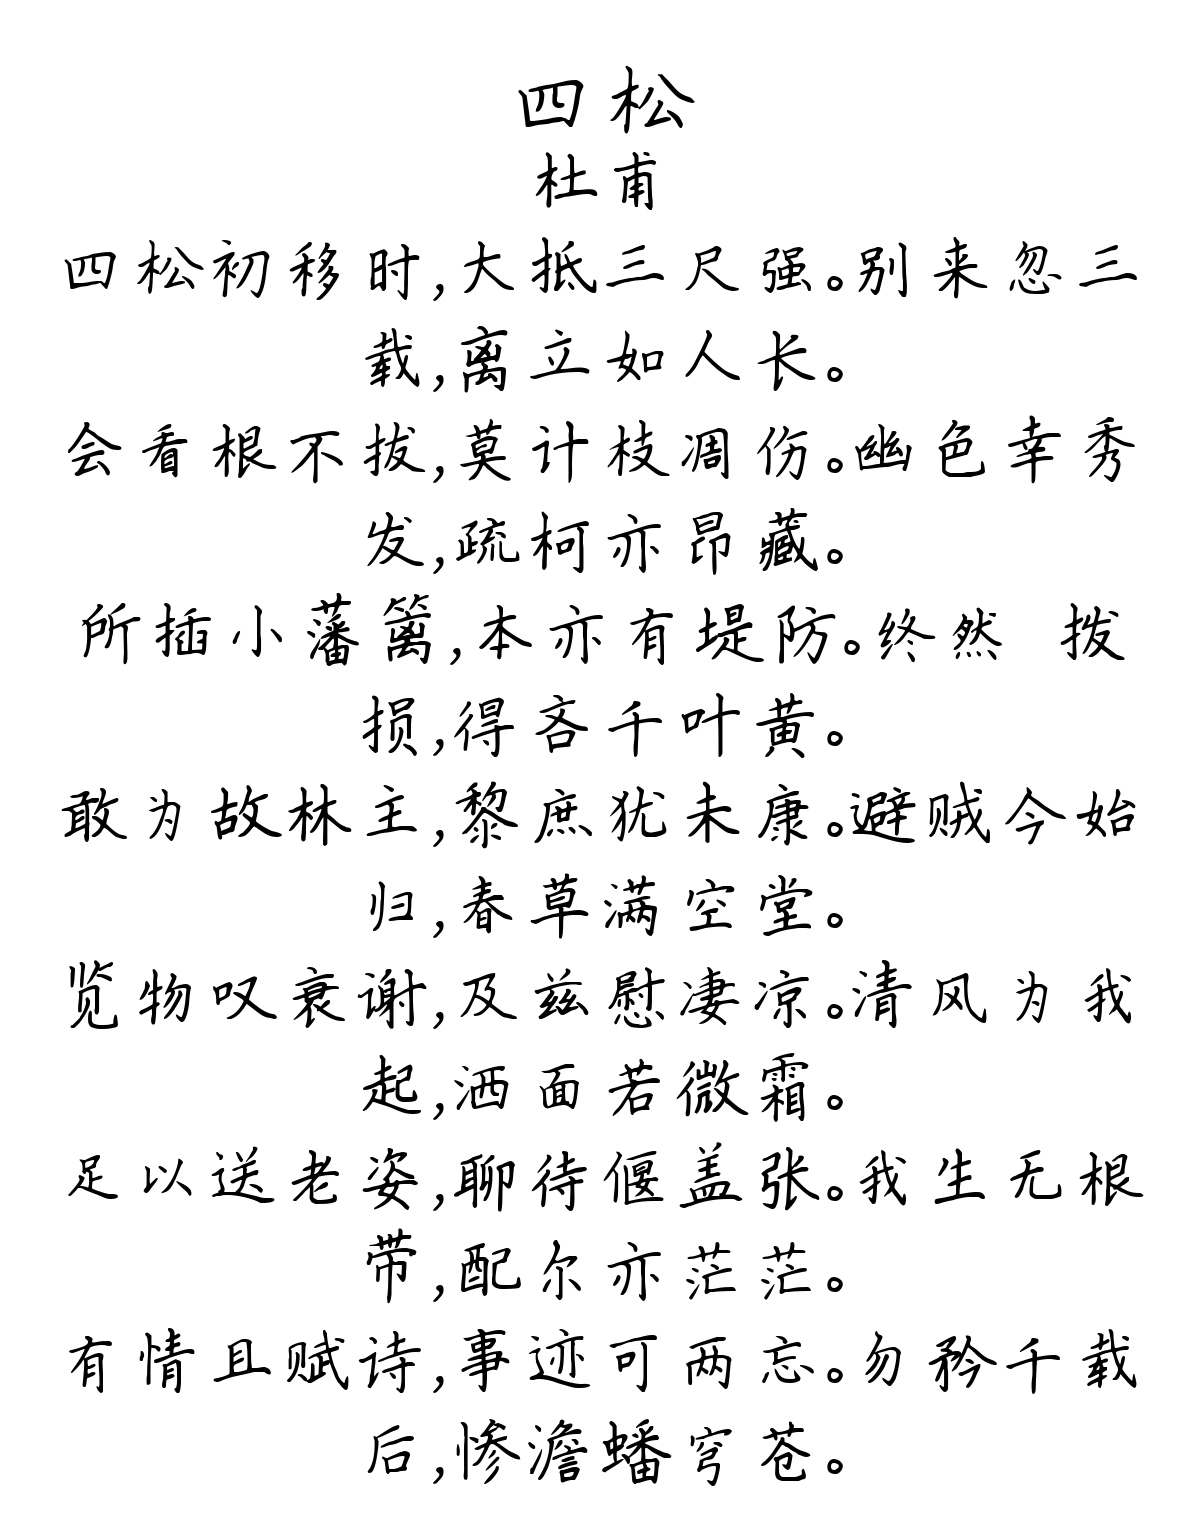 四松
杜甫
四松初移时,大抵三尺强。别来忽三
载,离立如人长。
会看根不拔,莫计枝凋伤。幽色幸秀
发,疏柯亦昂藏。
所插小藩篱,本亦有堤防。终然 拨
损,得吝千叶黄。
敢为故林主,黎庶犹未康。避贼今始
归,春草满空堂。
览物叹衰谢,及兹慰凄凉。清风为我
起,洒面若微霜。
足以送老姿,聊待偃盖张。我生无根
带,配尔亦茫茫。
有情且赋诗,事迹可两忘。勿矜千载
后,惨澹蟠穹苍。